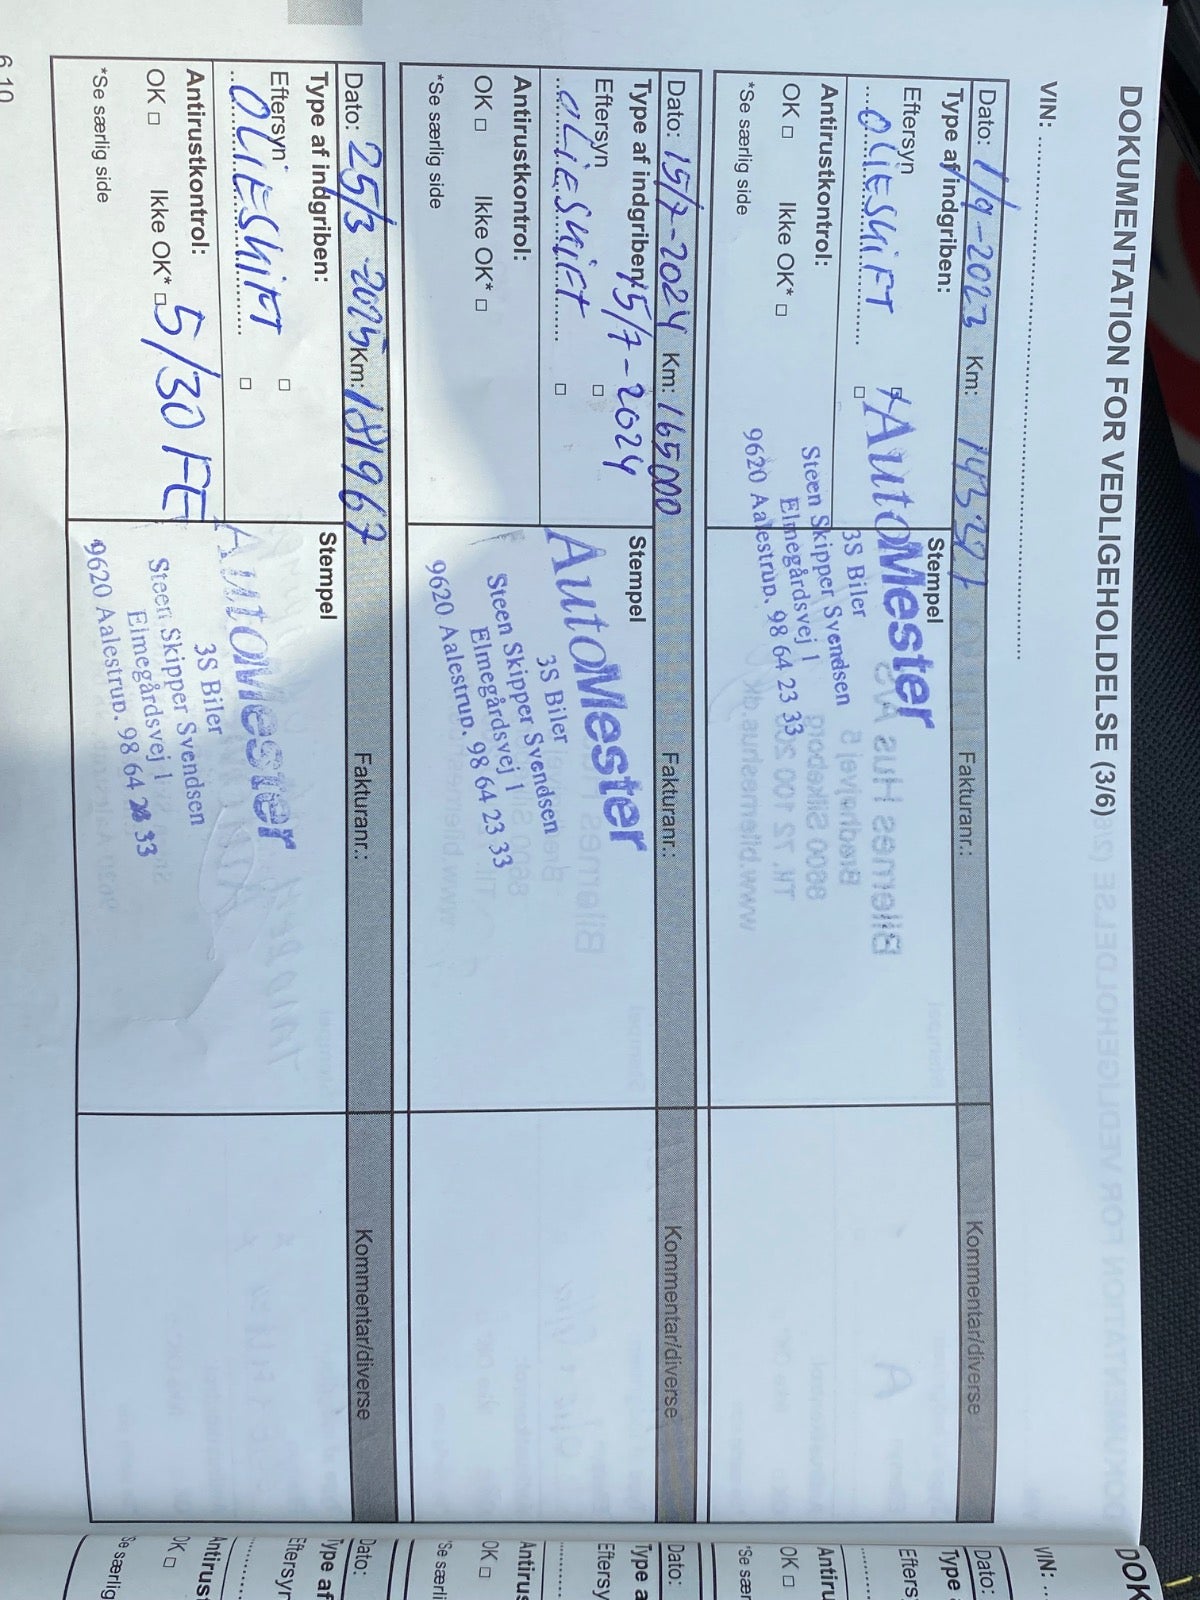 DOKUMENTATION FOR VEDLIGEHOLDELSE (3/6)
VIN: ...........................................................
Dato: 1/9-2023 Km: 143.397
Fakturanr.:
Kommentar/diverse
Type af indgriben:
Eftersyn
OLIESKIFT
Antirustkontrol:
OK □ Ikke OK* □
*Se særlig side
Stempel
AutoMester
3S Biler
Steen Skipper Svendsen
Elmegårdsvej 1
9620 Aalestrup. 98 64 23 33
Dato: 15/7-2024 Km: 165000
Fakturanr.:
Kommentar/diverse
Type af indgriben: 15/7-2024
Eftersyn □
OLIESKIFT □
Antirustkontrol:
OK □ Ikke OK* □
*Se særlig side
Stempel
AutoMester
3S Biler
Steen Skipper Svendsen
Elmegårdsvej 1
9620 Aalestrup. 98 64 23 33
Dato: 25/3-2025 Km: 181967
Fakturanr.:
Kommentar/diverse
Type af indgriben:
Eftersyn □
OLIESKIFT □
Antirustkontrol:
OK □ Ikke OK* □ 5/30 FE
*Se særlig side
Stempel
AutoMester
3S Biler
Steen Skipper Svendsen
Elmegårdsvej 1
9620 Aalestrup. 98 64 23 33
6.10
DOK
VIN: ...
Dato:
Type
Efters
Antiru
OK □
*Se sær
Dato:
Type a
Eftersy
Antirus
OK □
*Se særli
Dato:
Type af
Eftersyn
Antirust
OK □
*Se særlig